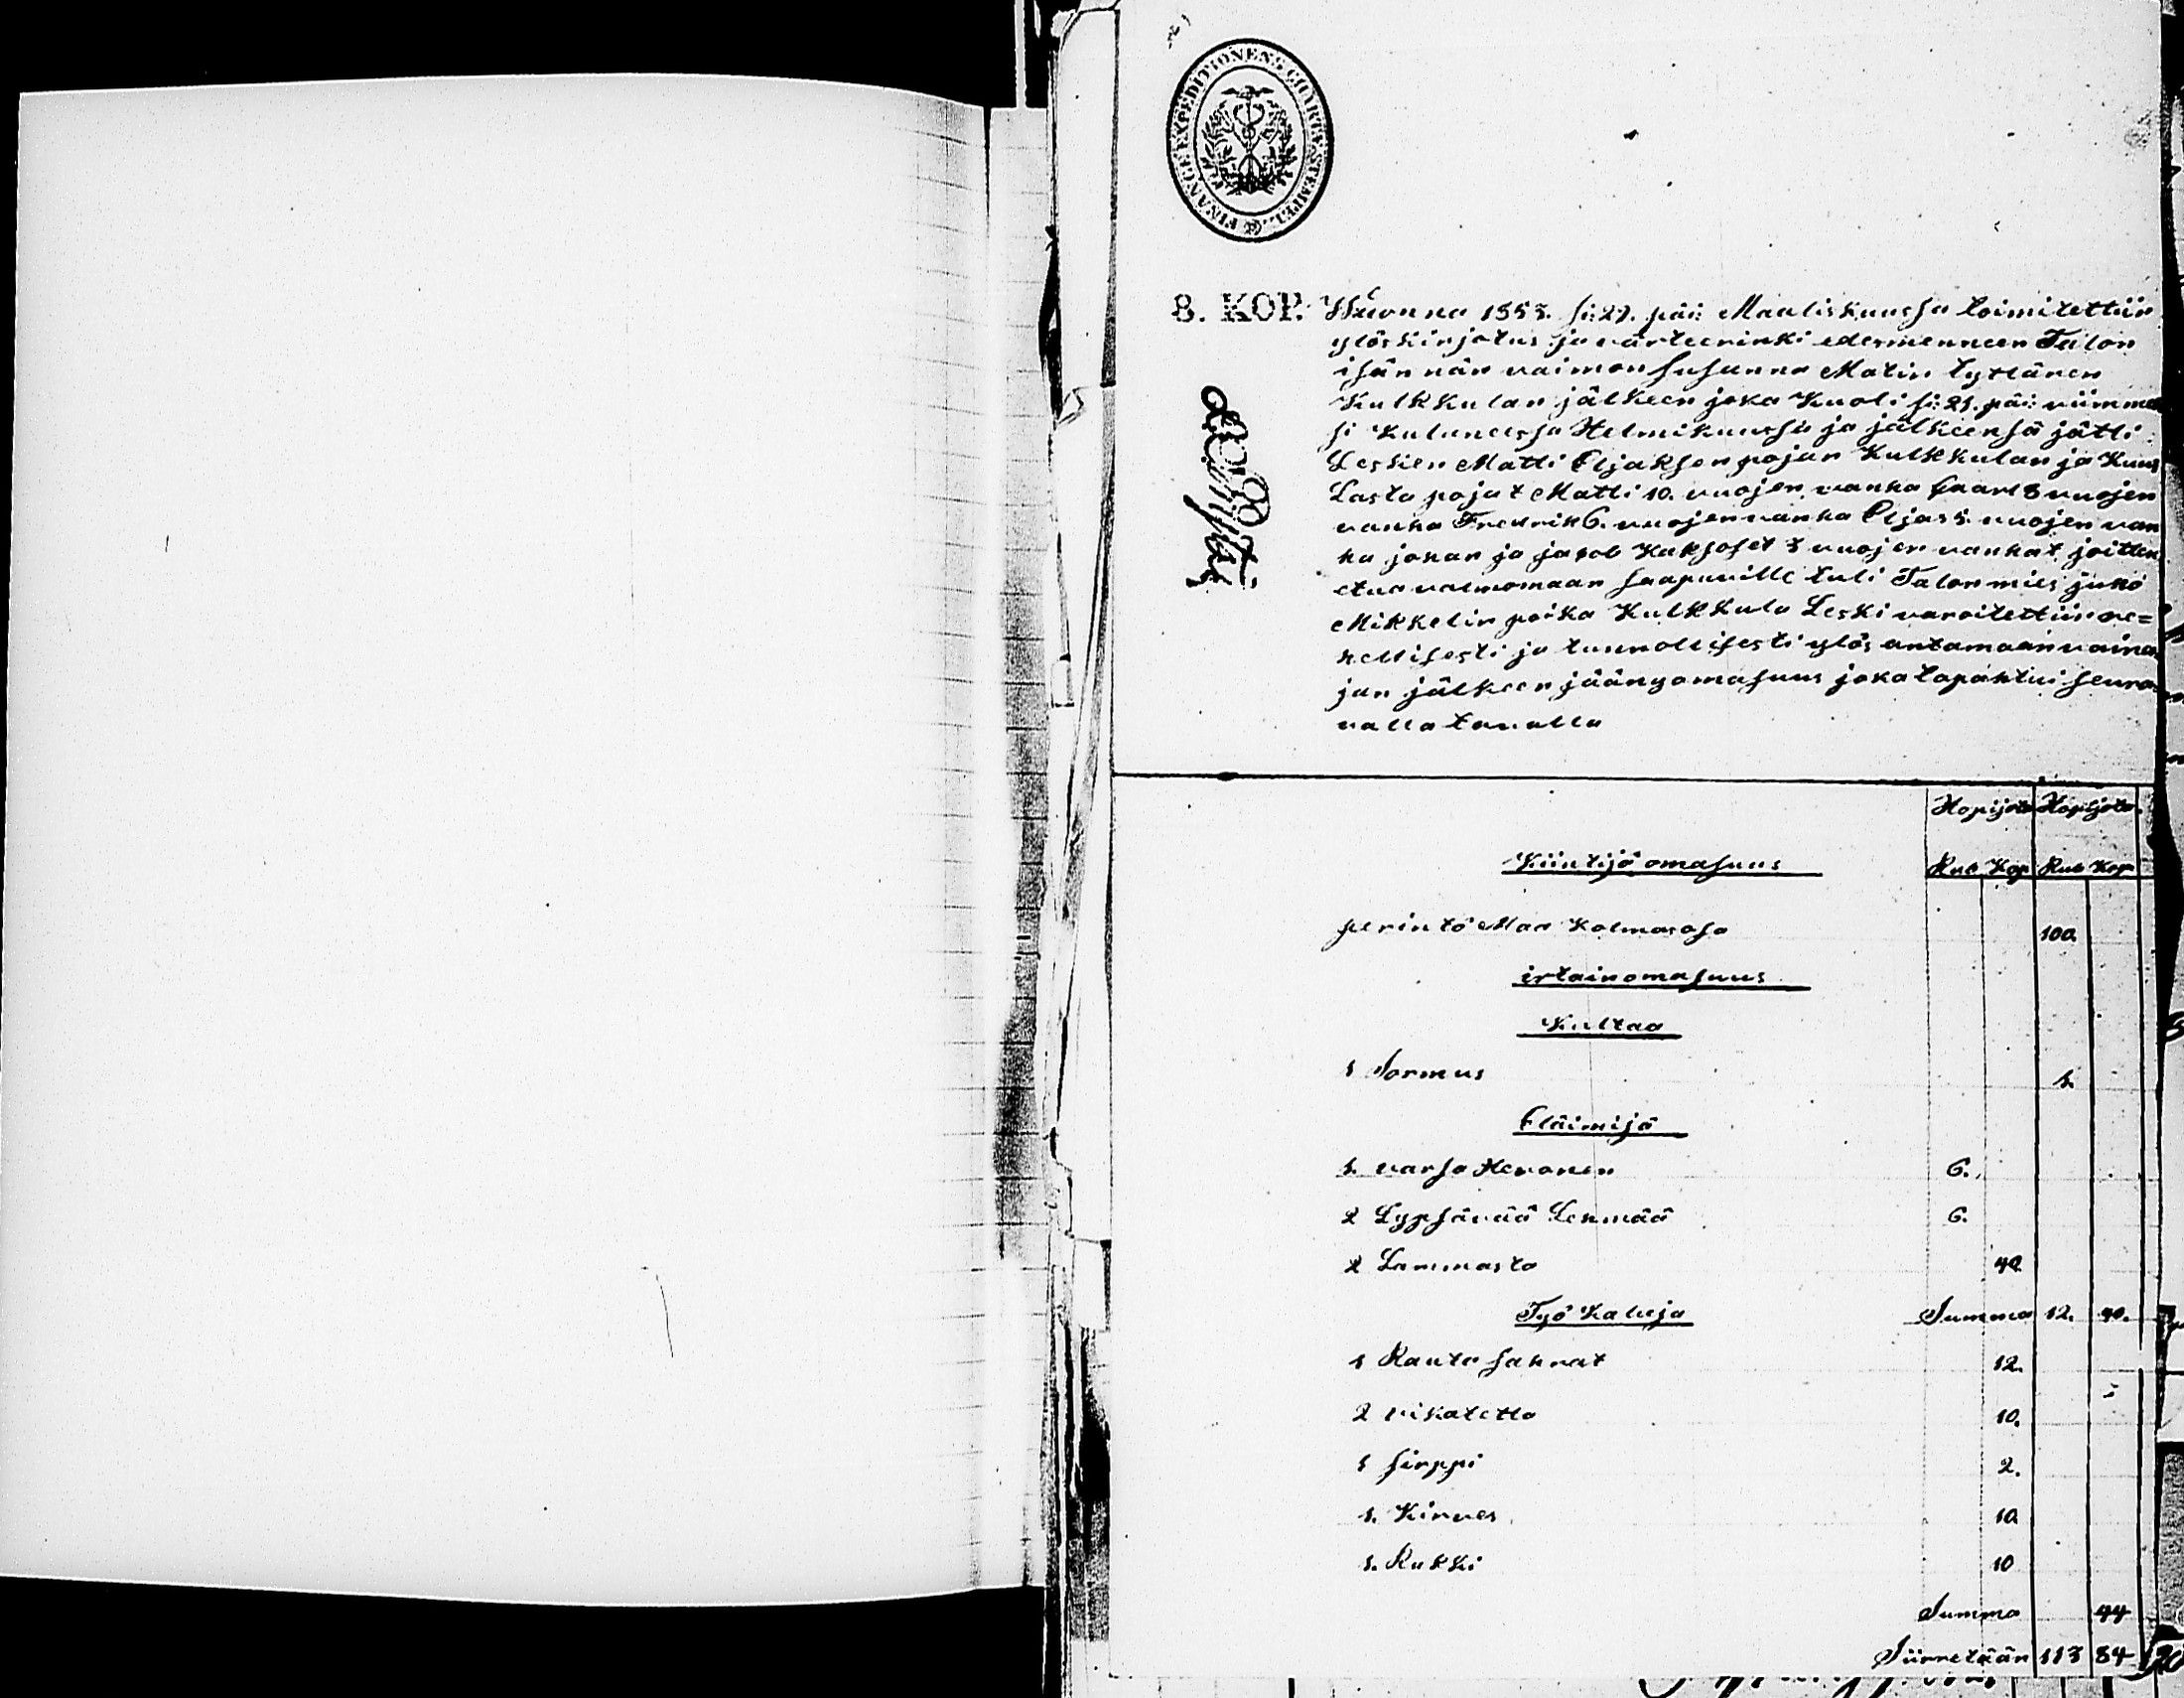 FINANCE EXPEDITIONENS CHARTÆ STEMPEL
8. KOP. Wuonna 1853. si:29. päi: Maaliskuussa toimitettiin
ylöskirjotus ja värteerinki edesmenneen Talon
isännän vaimon Susanna Matin tyttären
Kulkkulan jälkeen joka Kuoli si:21. päi: viimmei
si Kuluneessa Helmikuussa ja jälkeensä jätti
Lesken Matti Eljaksen pojan Kulkkulan ja Kuus
Lasta pojat Matti 10. vuojen vanha Kaarl 8 vuojen
vanha Fredrik 6. vuojen vanha Eljas 5. vuojen van
ha johan ja jacob Kaksoset 3 vuojen vanhat joitten
etua valwomaan saapuville tuli Talon mies juho
Mikkelin poika Kulkkula Leski varoitettiin re=
hellisesti ja tunnollisesti ylös antamaan vaina
jan jälkeen jäänyomasuus joka tapahtui seura
valla tavalla
Hopijata Hopijata
Kiintijä omasuus Rub Kop Rub Kop
perintö Maa Kolmasosa 100.
irtain omasuus
Kultaa
1 Sormus 1.
Eläimijä
1. varsa Hevonen 6.
2 Lypsävää Lehmää 6.
2 Lammasta 40
Työ Kaluja Summa 12. 40.
1 Rauta sahrat 12.
2 vikatetta 10.
1 sirppi 2.
1. Kirves 10
1. Rukki 10
Summa 44
Siirretään 113 84